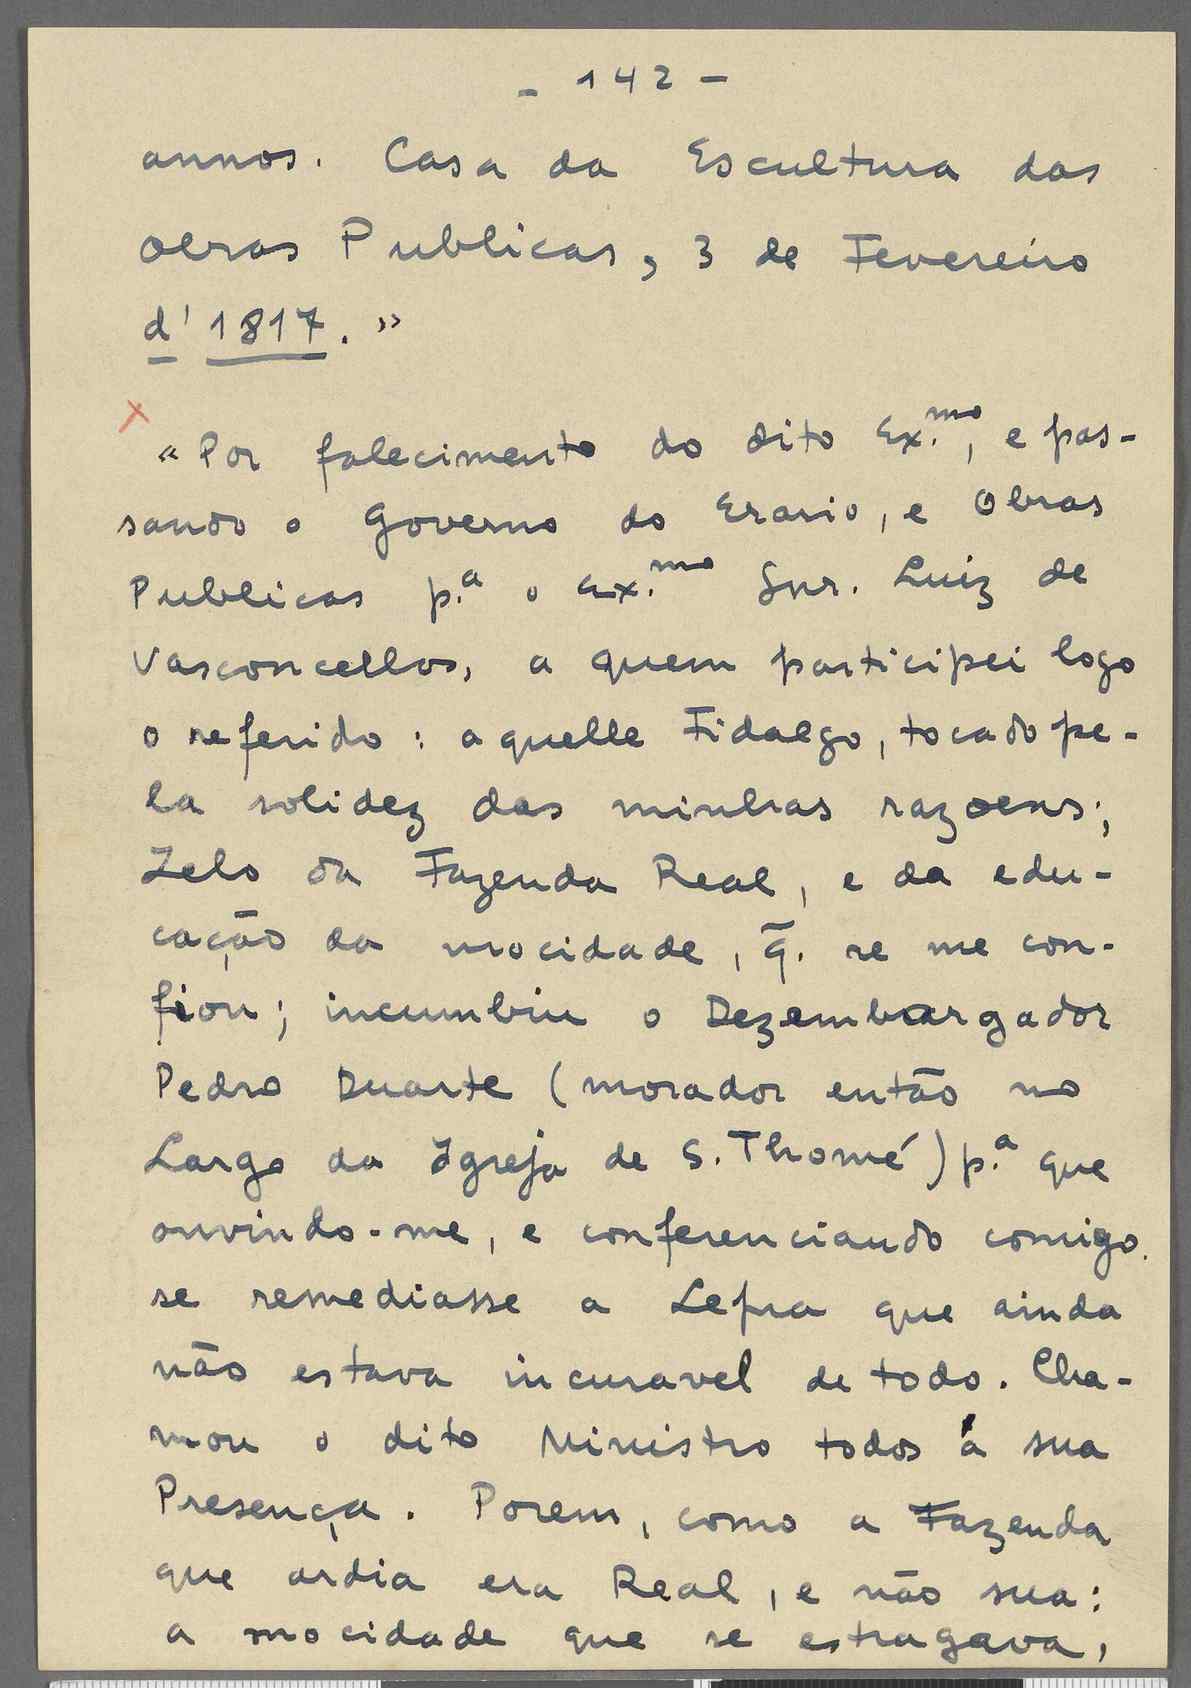 - 142 -
annos. Casa da Escultura das
obras Publicas, 3 de Fevereiro
d'1817. »
x
« Por falecimento do dito Ex.mo, e pas-
sando o Governo do Erario, e Obras
Publicas p.a o Ex.mo Snr. Luiz de
Vasconcellos, a quem participei logo
o referido: aquelle Fidalgo, tocado pe-
la solidez das minhas razoens;
Zelo da Fazenda Real, e da edu-
cação da mocidade, q̃. se me con-
fiou; incumbiu o Dezembargador
Pedro Duarte (morador então no
Largo da Igreja de S. Thomé) p.a que
ouvindo-me, e conferenciando comigo.
se remediasse a Lepra que ainda
não estava incuravel de todo. Cha-
mou o dito Ministro todos á sua
Presença. Porem, como a Fazenda
que ardia era Real, e não sua:
a mocidade que se estragava,